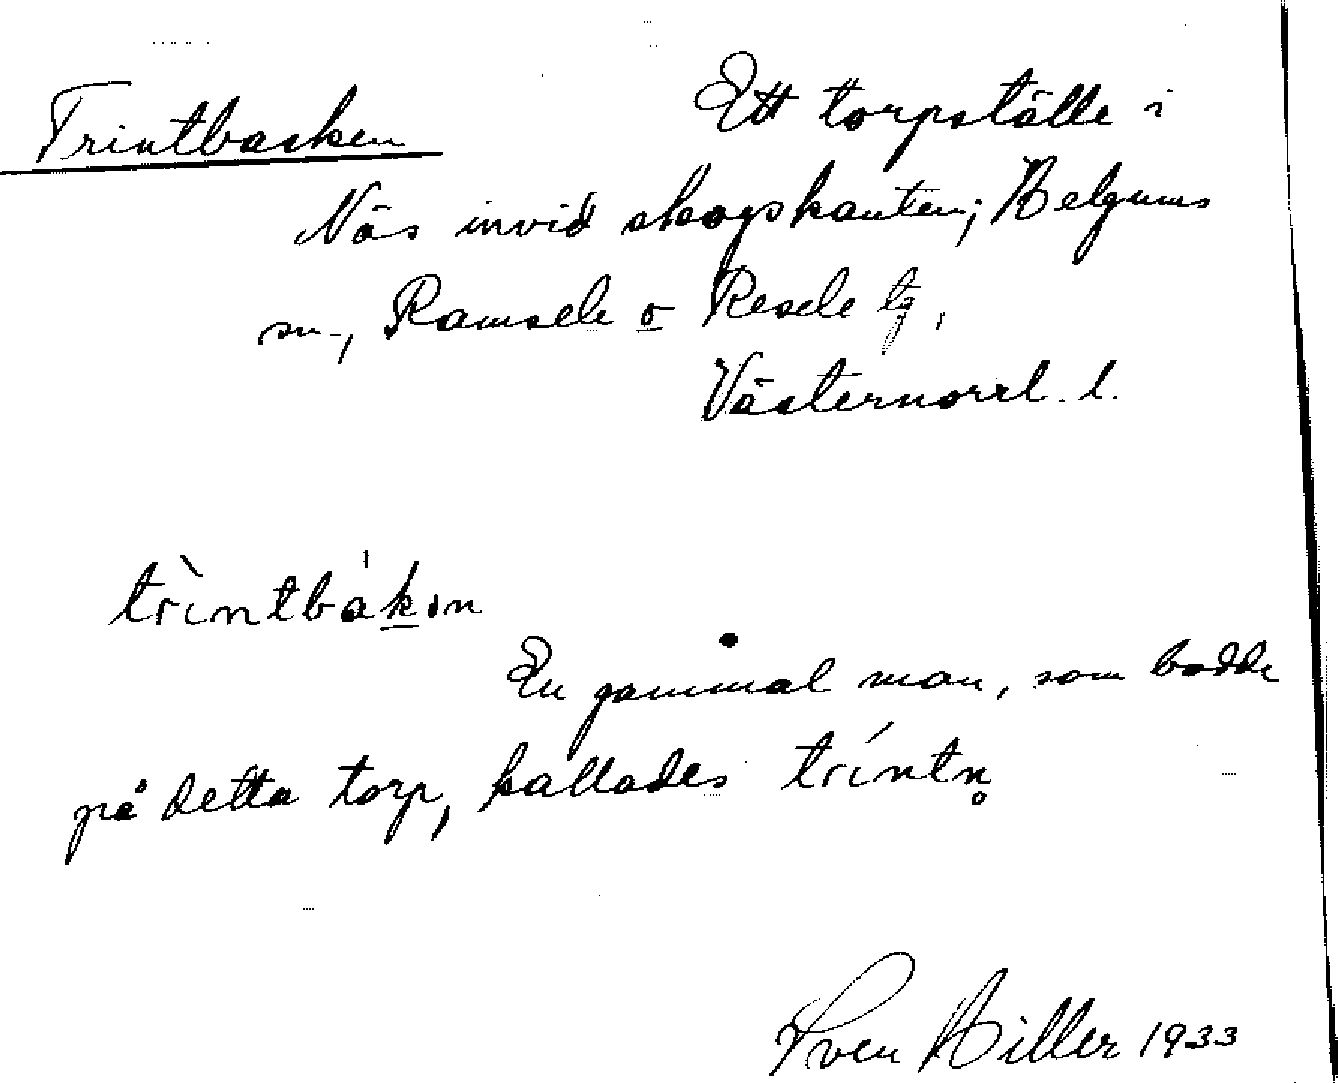 Trintbacken
Ett torpställe i
Näs invid skogskanten; Helgums
sn., Ramsele o Resele tg,
Västernorrl. l.
trìntbák̲ın
En gammal man, som bodde
på detta torp, kallades tríntn̥
Sven Hiller 1933